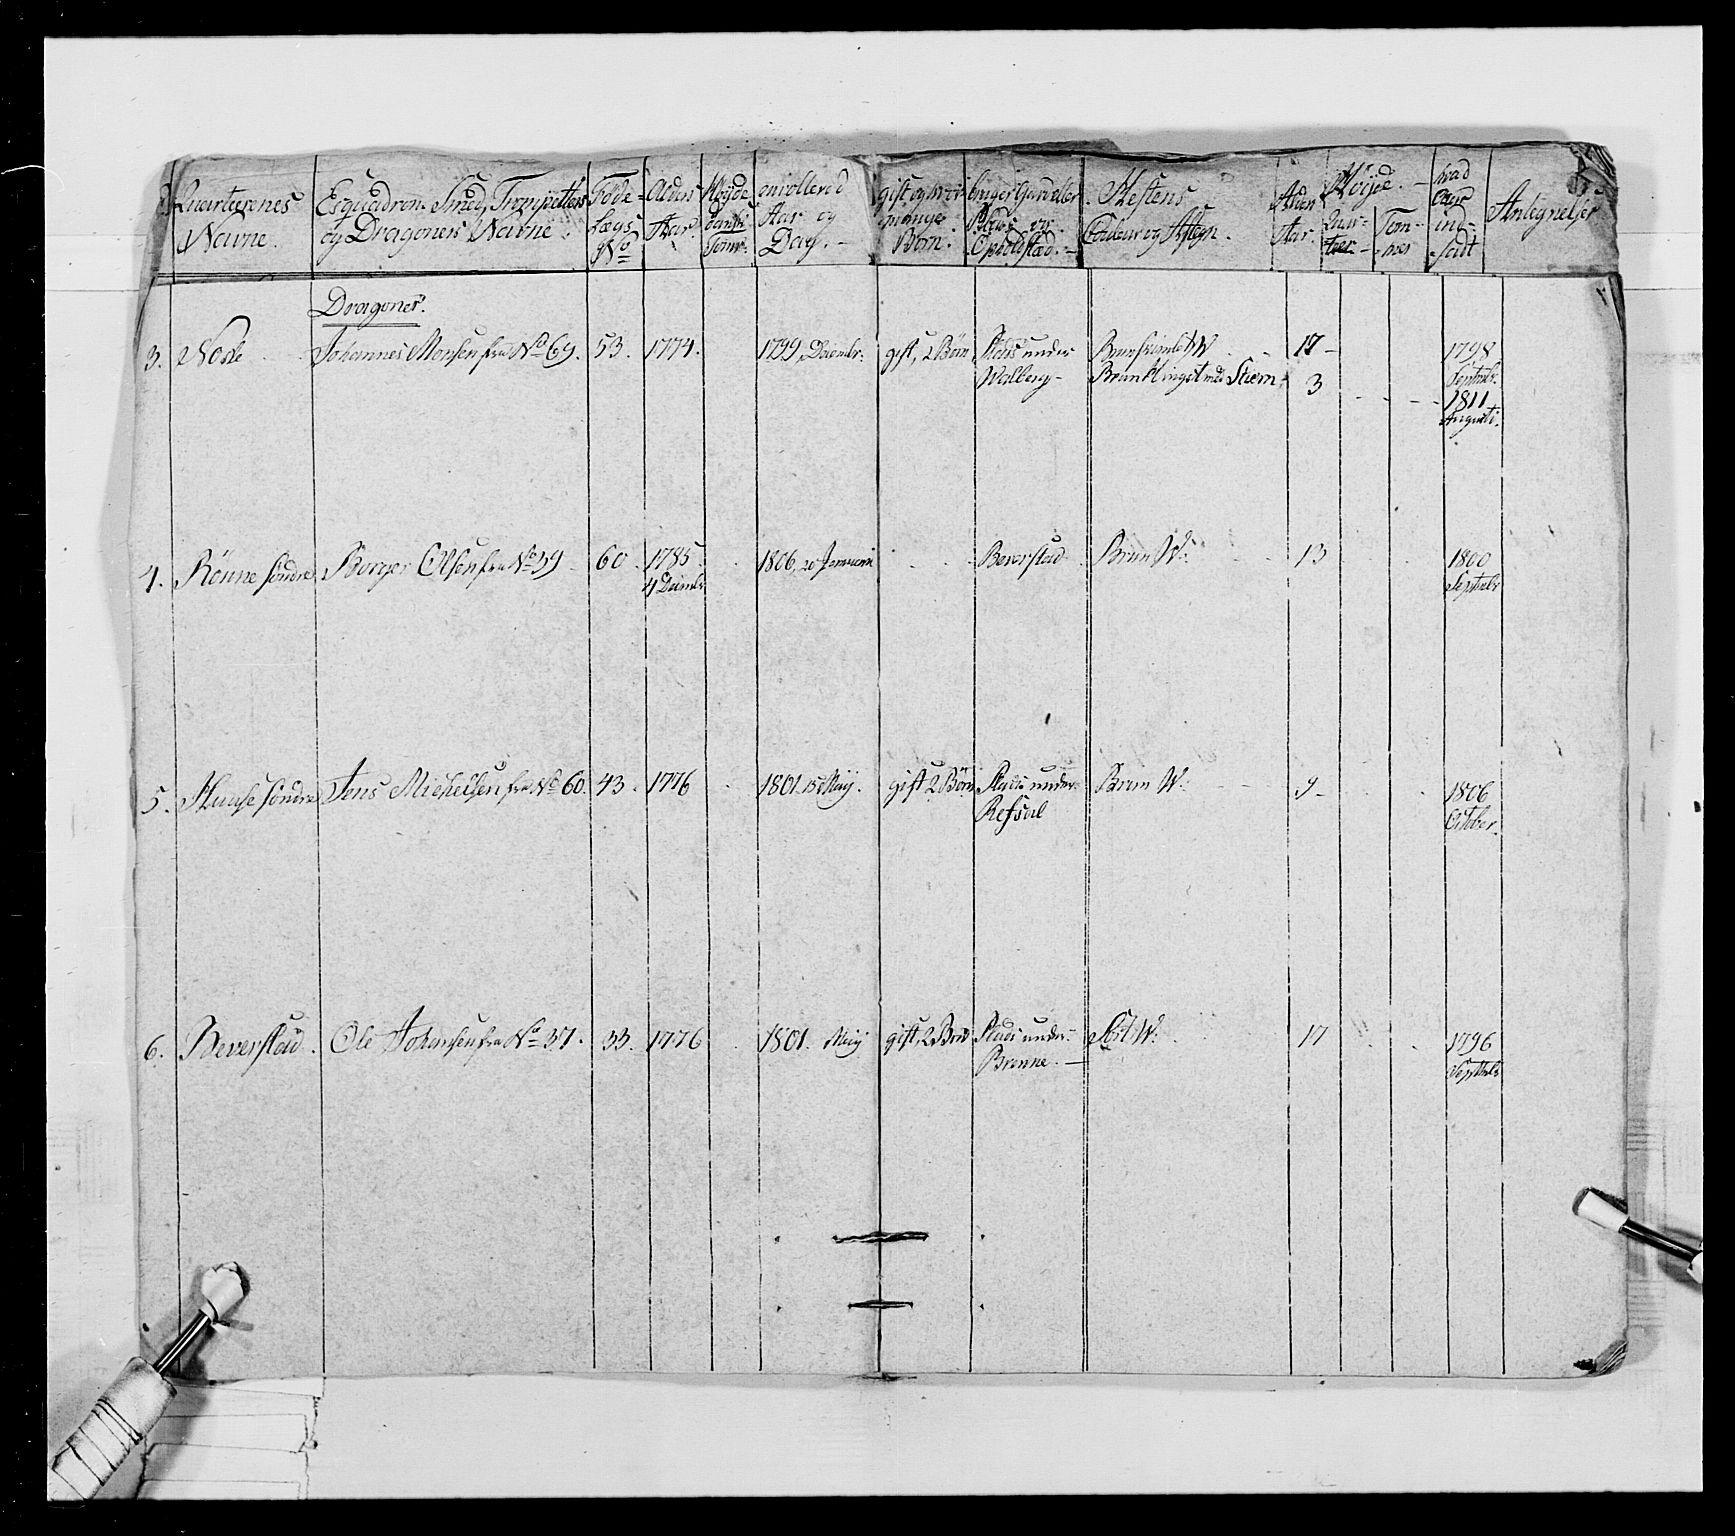 Quarterenes Navne. Esquadron Smed, Trompetters og Dragoners Navne. Føde Lægs No Alders Aar. Høyde danske Tomr. enrollered Aar og Dag. gift og hvor mange Børn. bruger Gaard eller Plads og Opholdsted. Hestens Couleur og Aftegn. Alder Aar. Høyde. Quarteer Tommer hvad Aar indsadt Antegnelser
Dragoner.
3. Johannes Monsen fra No 69. 53. 1774. 1799, Decembr: gift, 2 Børn Plads under 17 1798
Walberg Brun Hingst med Stiern 3 Septembr.
1811
Augusti.
4. Rønne søndre Borger Olsen fra No 39 60 1785 1806, 20 Januarii Beverstad Brun W: 13 1800
4 Decembr Septembr
5. Huuse søndre Jens Michelsen fra No 60. 43. 1776 1801. 15 Maij. gift 2 Børn Plads under Brun W: 9 1806
Refsal October.
6. Beverstad. Ole Johansen fra No 37. 33. 1776 1801. Maij gift, 2 Børn Plads under Sort W: 17 1796
Brenne. Septembr